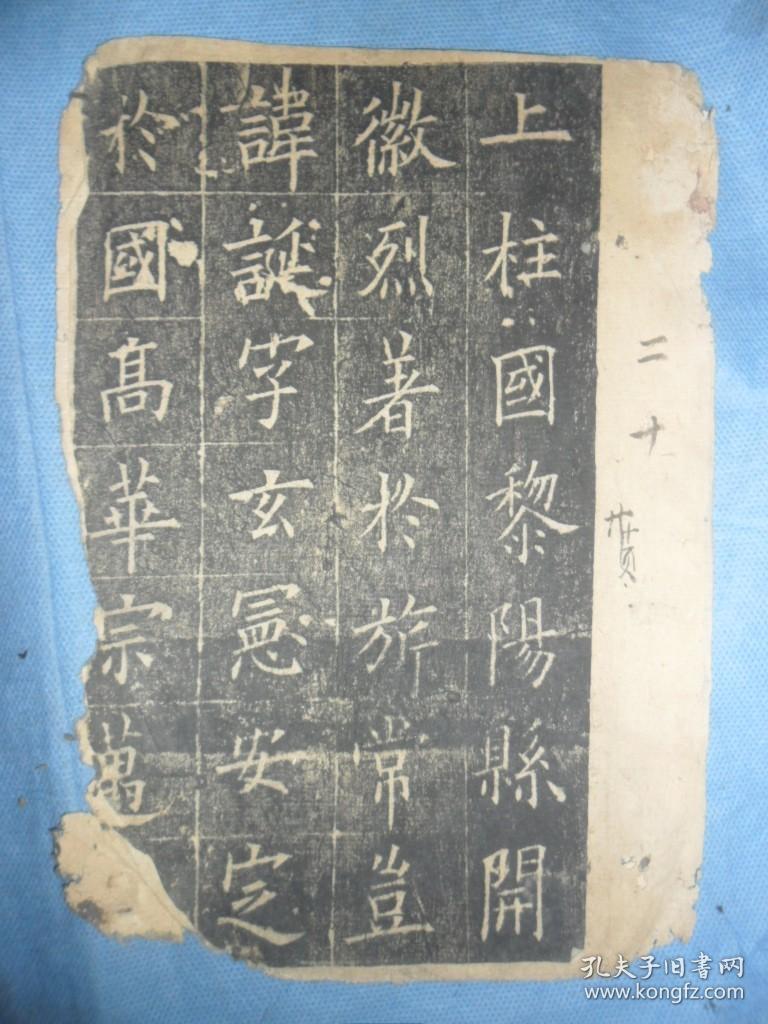 二十
上柱國黎陽縣開
徽烈著於旂常豈
諱誕字玄憲安定
於國髙華宗邁
孔夫子旧書网
www.kongfz.com